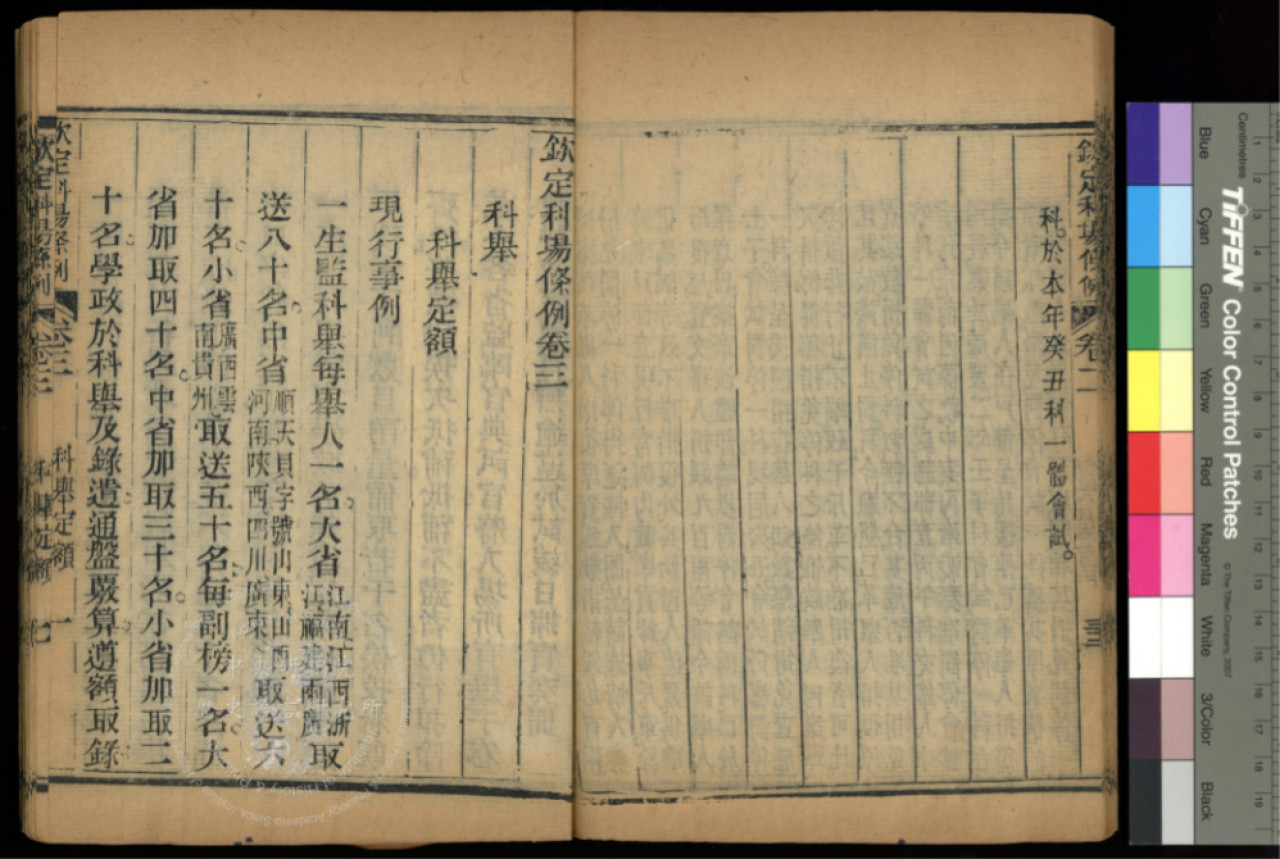 欽定科場條例 卷二
科於本年癸丑科一體會試。
欽定科場條例卷三
科舉
科舉定額
現行事例
一生監科舉每舉人一名。大省江南江西浙江福建廣取
送八十名。中省順天貝字號山東山西河南陝西四川廣東取送六
十名。小省廣西雲南貴州取送五十名。每副榜一名。大
省加取四十名。中省加取三十名。小省加取二
十名。學政於科舉及錄遺。通盤覈算。遵額取錄
欽定科場條例 卷三 科舉定額 一
欽定科場條例 卷三 科舉定額 七
Centimetres
TIFFEN Color Control Patches
© The Tiffen Company, 2007
Blue
Cyan
Green
Yellow
Red
Magenta
White
3/Color
Black